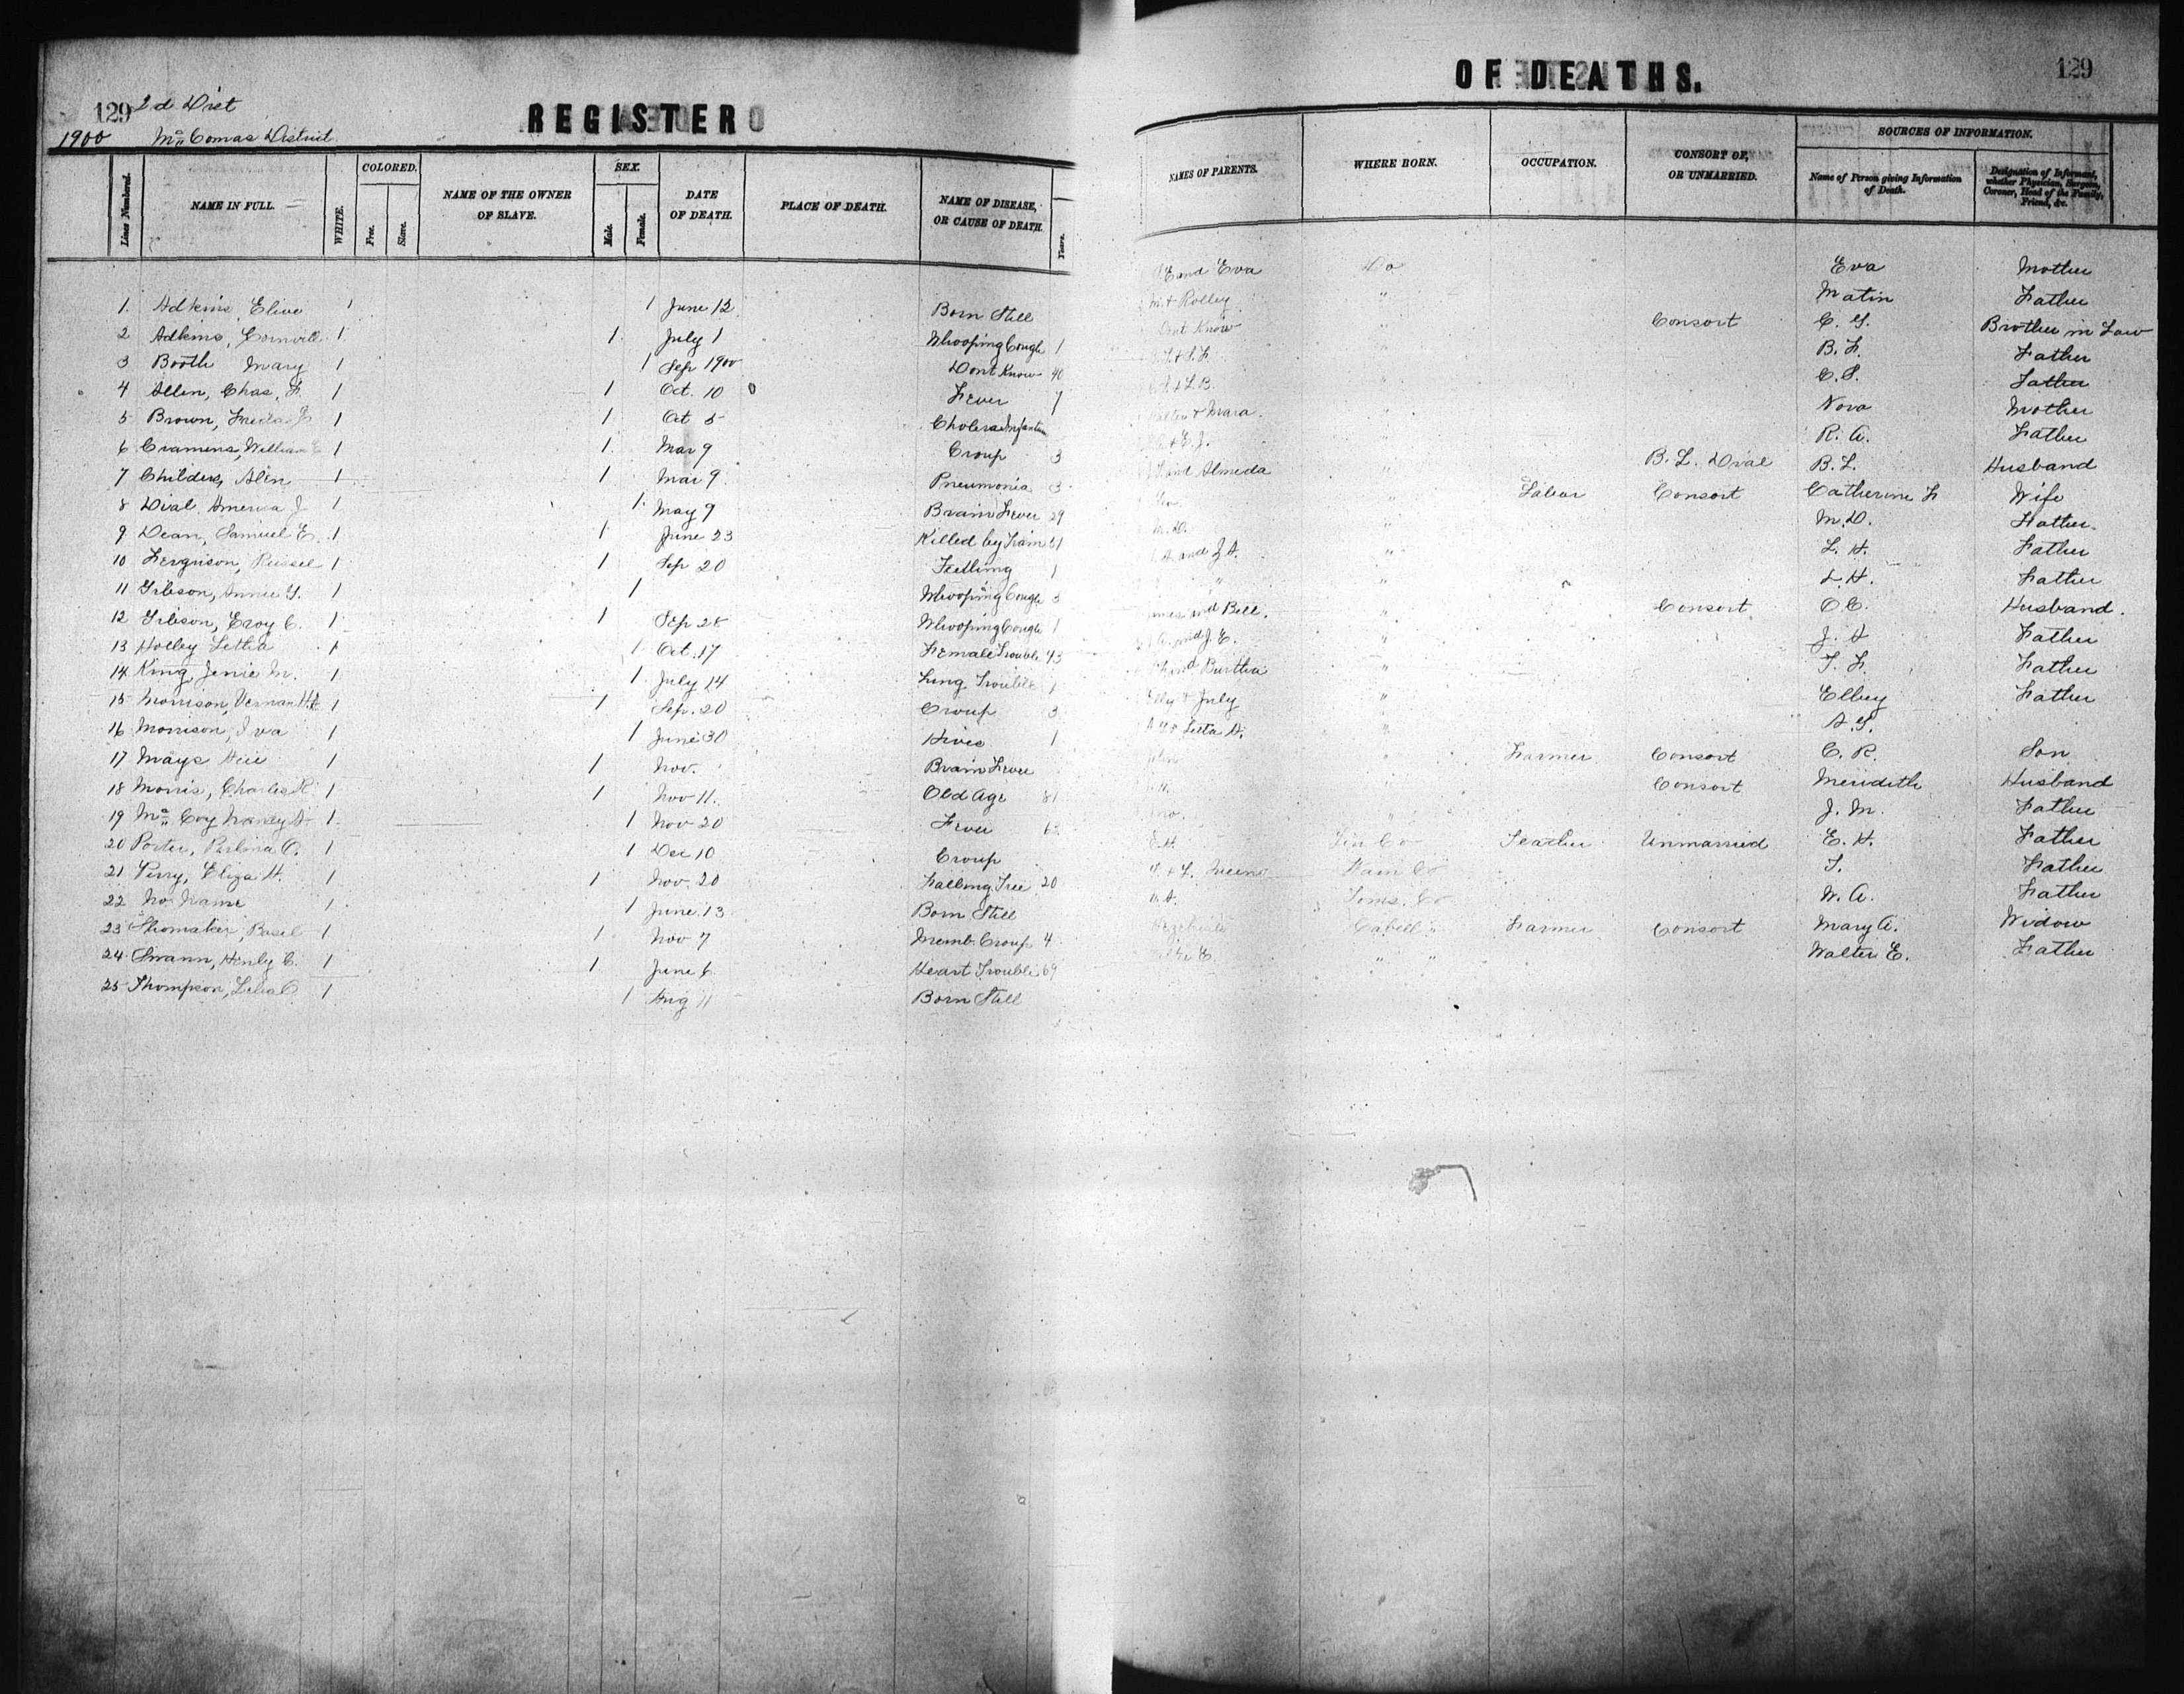 129 2d Dist
1900 Mc Comas District
REGISTER
Lines Numbered. NAME IN FULL. WHITE. COLORED. Free. Slave. NAME OF THE OWNER OF SLAVE. SEX. Male. Female. DATE OF DEATH. PLACE OF DEATH. NAME OF DISEASE, OR CAUSE OF DEATH. Years.
1. Adkins, Elive 1 1 June 12 Born Still
2 Adkins, 1 1 July 1 Whooping Cough 1
3 Booth Mary 1 1 Sep 1900 Dont Know 40
4 Allen, Chas, F. 1 1 Oct. 10 Fever 7
5 Brown, 1 1 Oct 5 Cholera Infantum
6 Cramens, William 1 1 Mar 9 Croup 3
7 Childers, Alen 1 1 Mar 9 Pneumonia 3
8 Dial, America J 1 1 May 9 Brain Fever 29
9 Dean, Samuel E. 1 1 June 23 Killed by Train
10 Ferguson, Russel 1 1 Sep 20 1
11 Gibson, Annie G. 1 1 Whooping Cough 3
12 Gibson, Eroy C. 1 1 Sep 28 Whooping Cough 1
13 Holley Lethia 1 1 Oct. 17 Female Trouble 43
14 King, Jenie M. 1 1 July 14 Lung Trouble 1
15 Morrison, Vernan 1 1 Sep. 20 Croup 3
16 Morrison, Iva 1 1 June 30 Hives 1
17 Mays 1 1 Nov. Brain Fever
18 Morris, Charles R 1 1 Nov 11. Old Age 81
19 Mc Coy Nancy A. 1 1 Nov 20 Fever 62
20 Porter, O. 1 1 Dec 10 Croup
21 Perry, Eliza H. 1 1 Nov. 20 Falling Tree 20
22 No Name 1 1 June 13 Born Still
23 Shomaker, Basel 1 1 Nov 7 Memb. Croup 4
24 Swann, Henly C. 1 1 June 6 Heart Trouble 69
25 Thompson, 1 1 Aug 11 Born Still
129
OF DEATHS.
NAMES OF PARENTS. WHERE BORN. OCCUPATION. CONSORT OF, OR UNMARRIED. SOURCES OF INFORMATION. Name of Person giving Information of Death. Designation of Informant, whether Physician, Surgeon, Coroner, Head of the Family, Friend, &c.
and Eva Do Eva Mother
& Rolley " Matin Father
Dont Know " Consort C. G. Brother in Law
" B. F. Father
& L. B. " C. S. Father
Walter & Mara. " Nova Mother
& E. J. " R. A. Father
and Almeda " B. L. Dial B. L. Husband
" Labor Consort Catherine F Wife
M. D. " M. D. Father.
and J. A. " L. H. Father
" " L. H. Father
James and Bell. " Consort O. C. Husband.
and J. E. " J. H Father
and Burtha " T. F. Father
Elby & July " Elbey Father
" A. G.
John " Farmer Consort C. R. Son
Consort Merideth Husband
" J. M. Father
E. H. Lin Co Teacher Unmarried E. H. Father
Wain Co T. Father
W. A. W. A. Father
Hezekiah Cabell " Farmer Consort Mary A. Widow
" " Walter E. Father